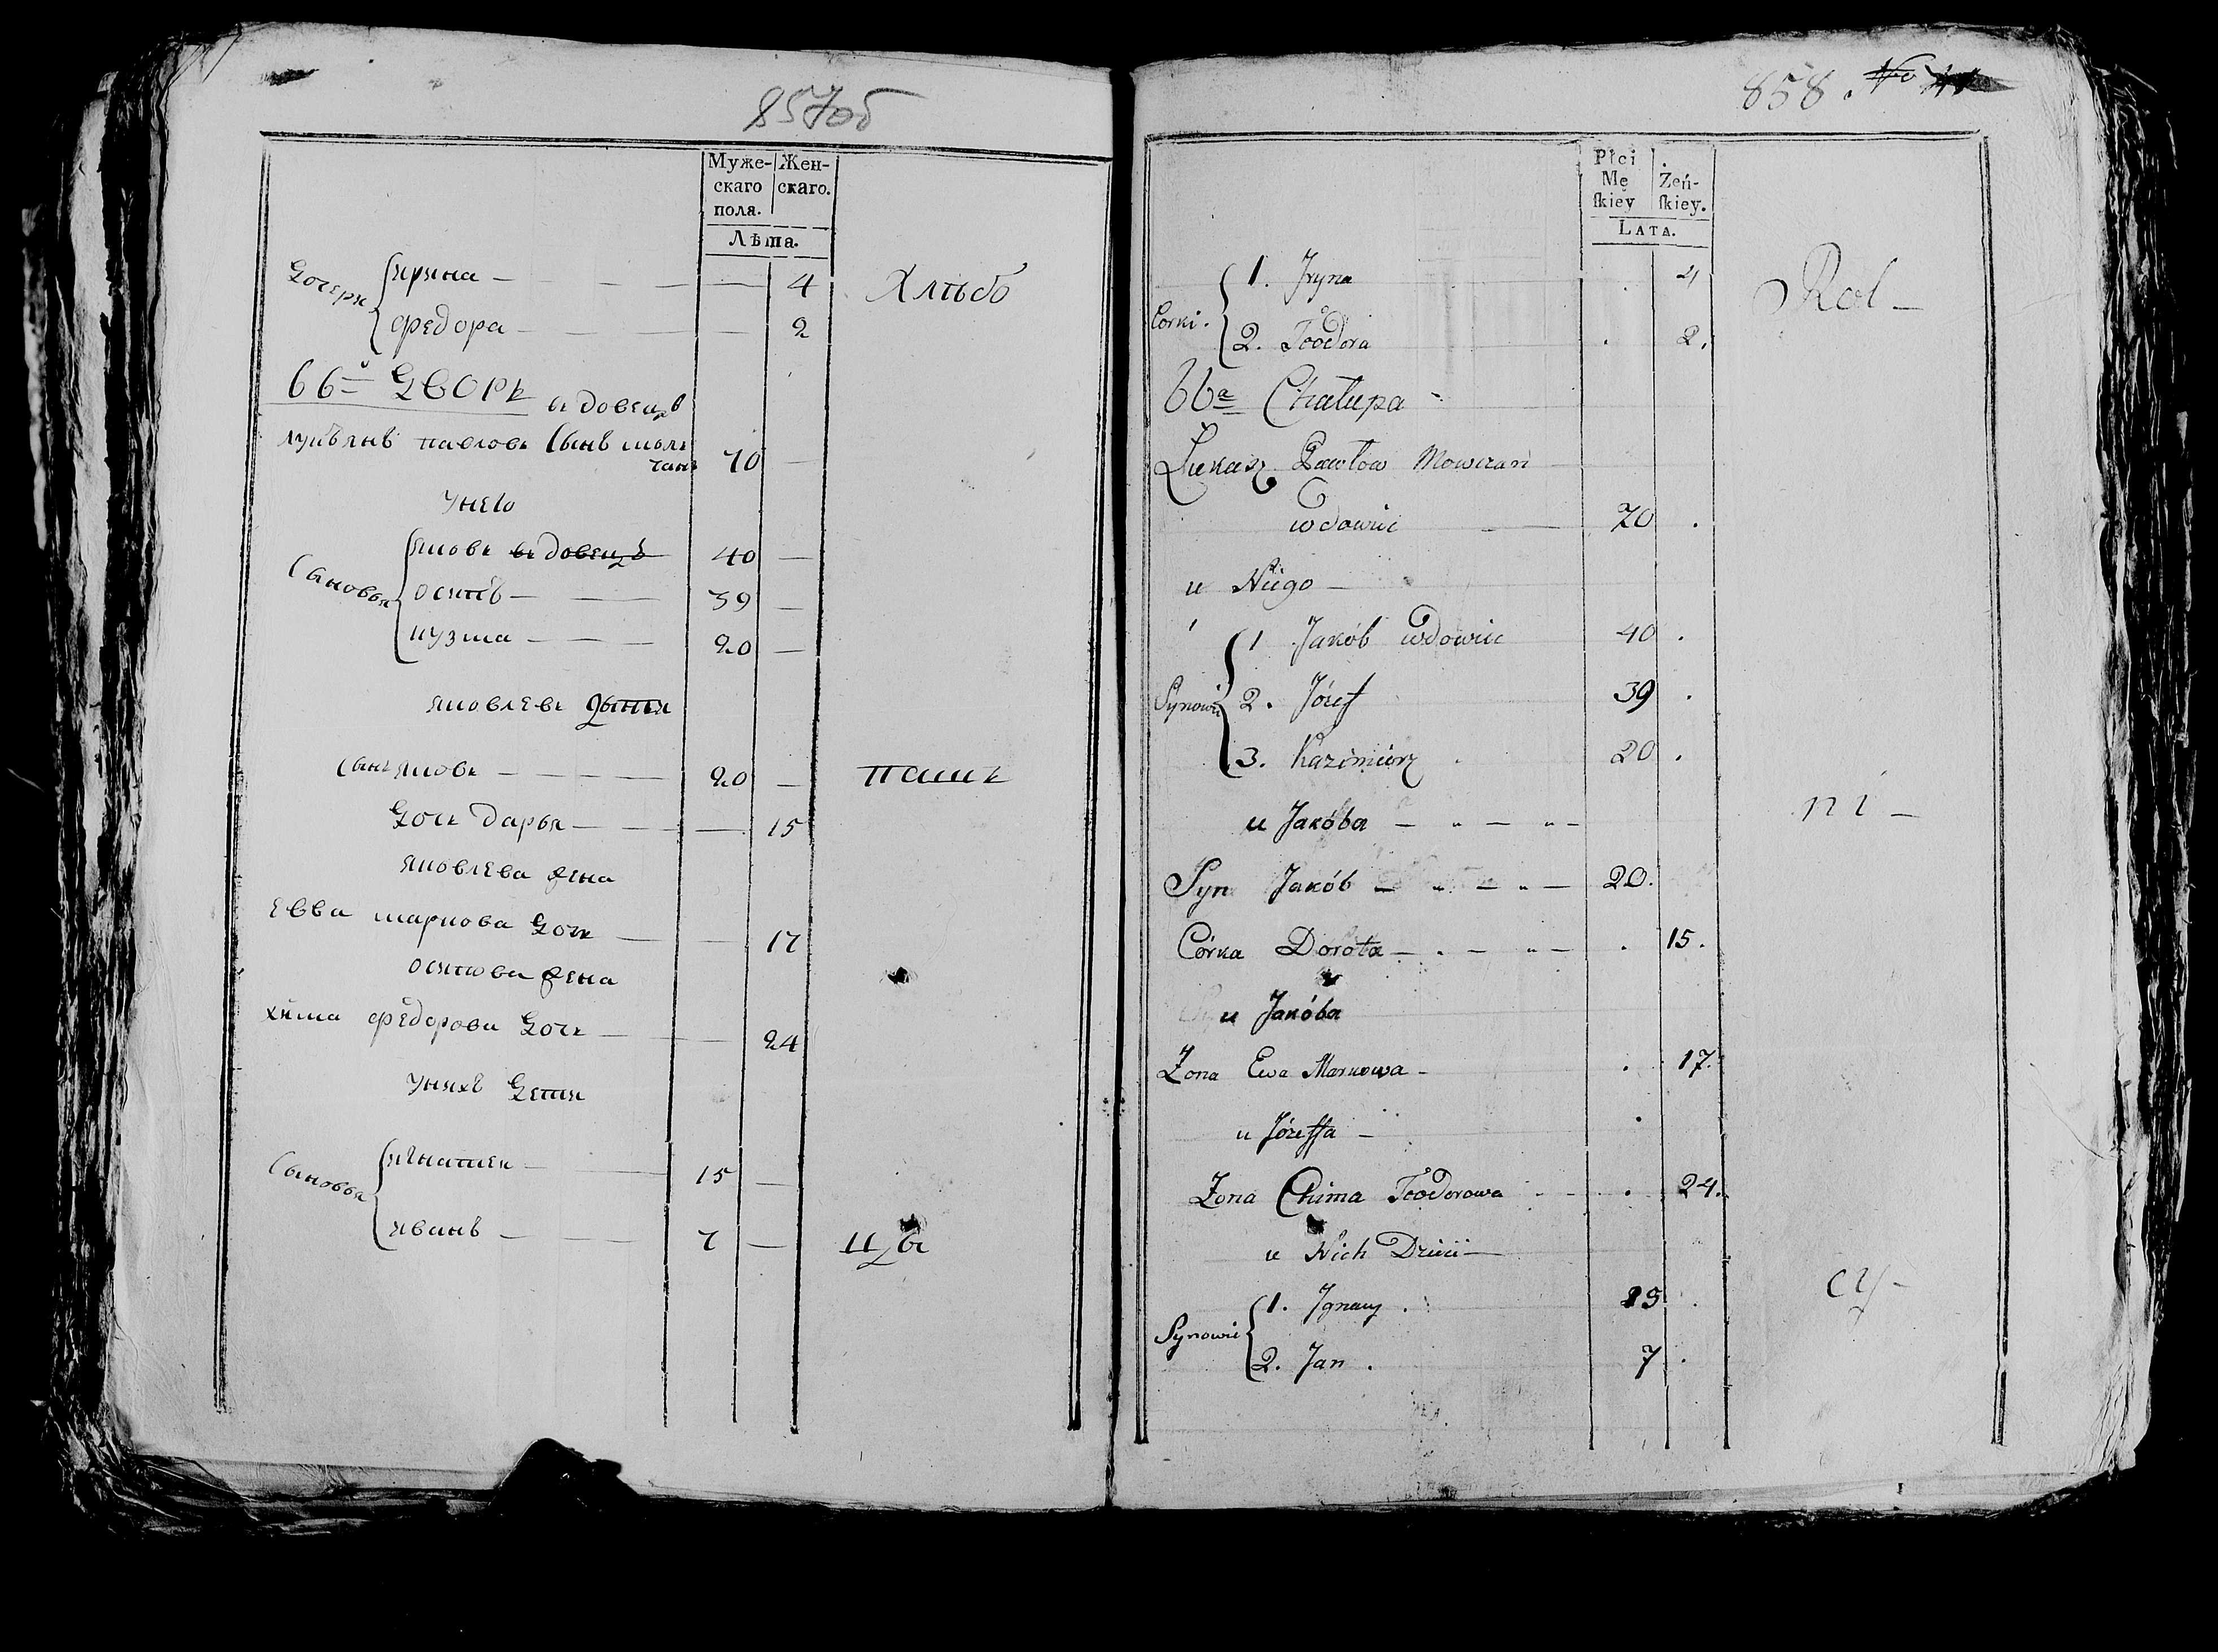 857об
Муже- Жен-
скаго скаго.
пола.
Лѣта.
Дочери
ирина — 4 Хлѣбо
федора — 2
66й дворъ вдовецъ
лукъянъ павловъ сынъ молъ
чанъ 70 —
унего
Сыновья
яковъ вдовецъ 40 —
осипъ — 39 —
кузма — 20 —
яковлевы дѣти
сынъ яковъ — 20 — паш
Дочь дарья — 15
яковлева жена
Евва маркова дочь — 17
осипова жена
хима федорова дочь — 24
унихъ дети
Сыновья
игнатеи — 15 —
иванъ — 7 — цы
858. No
Płci
Mę Żeń-
ſkiey ſkiey.
LATA.
Corki.
1. Jryna . 4 Rol —
2. Teodora . 2.
66a Chałupa
Łukasz Pawłow Mowczan
wdowiec 70 .
u Niego —
Synowie
1 Jakób wdowiec 40 .
2. Józef 39 .
3. Kazimierz 20 .
u Jakóba — ni —
Syn Jakób — 20.
Córka Dorota — . 15.
u Jakóba
Zona Ewa Markowa — . 17.
u Józeffa —
Zona Chima Teodorowa . 24.
u Nich Dzieci —
Synowie
1. Jgnacy . 15 . cy —
2. Jan . 7 .